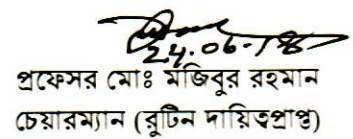 24.06.18
প্রফেসর মোঃ মজিবুর রহমান
চেয়ারম্যান (রুটিন দায়িত্বপ্রাপ্ত)